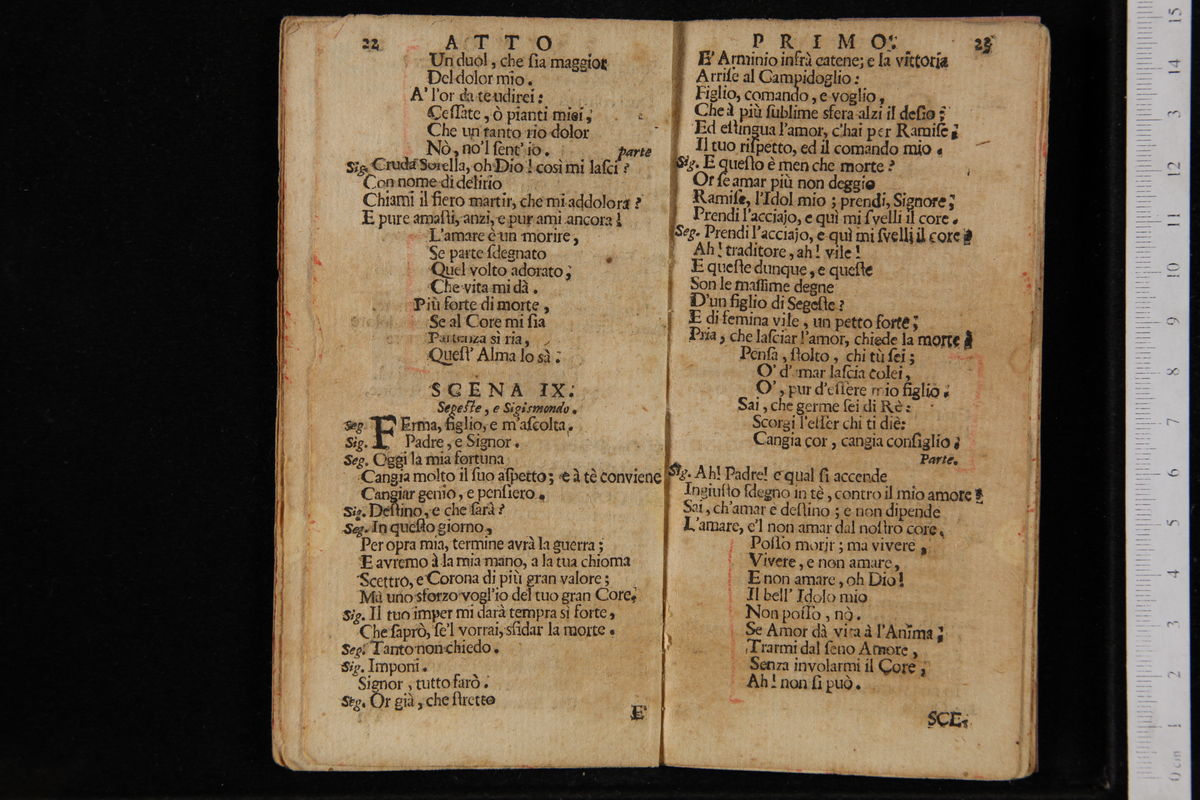 22 ATTO
Un duol, che ſia maggior
Del dolor mio.
A' l'or da te udirei:
Ceſſate, ò pianti miei;
Che un tanto rio dolor
Nò, no'l ſent' io. parte
Sig. Cruda Sorella, oh Dio! così mi laſci?
Con nome di delirio
Chiami il fiero martir, che mi addolora?
E pure amaſti, anzi, e pur ami ancora!
L'amare è un morire,
Se parte ſdegnato
Quel volto adorato;
Che vita mi dà.
Più forte di morte,
Se al Core mi ſia
Partenza si ria,
Queſt' Alma lo sà.
SCENA IX.
Segeſte, e Sigismondo.
Seg. FErma, figlio, e m'aſcolta.
Sig. Padre, e Signor.
Seg. Oggi la mia fortuna
Cangia molto il ſuo aſpetto; e à tè conviene
Cangiar genio, e penſiero.
Sig. Deſtino, e che ſarà?
Seg. In queſto giorno,
Per opra mia, termine avrà la guerra;
E avremo à la mia mano, a la tua chioma
Scettro, e Corona di più gran valore;
Ma uno sforzo vogl'io del tuo gran Core.
Sig. Il tuo imper mi darà tempra si forte,
Che ſaprò, ſe'l vorrai, sfidar la morte.
Seg. Tanto non chiedo.
Sig. Imponi.
Signor, tutto farò.
Seg. Or già, che ſtretto
E'
PRIMO. 23
E' Arminio infrà catene; e la vittoria
Arriſe al Campidoglio:
Figlio, comando, e voglio,
Che à più ſublime sfera alzi il deſio;
Ed eſtingua l'amor, c'hai per Ramiſe;
Il tuo riſpetto, ed il comando mio.
Sig. E queſto è men che morte?
Or ſe amar più non deggio
Ramiſe, l'Idol mio; prendi, Signore;
Prendi l'acciajo, e quì mi ſvelli il core.
Seg. Prendi l'acciajo, e quì mi ſvelli il core?
Ah! traditore, ah! vile!
E queſte dunque, e queſte
Son le maſſime degne
D'un figlio di Segeſte?
E di femina vile, un petto forte;
Pria, che laſciar l'amor, chiede la morte?
Penſa, ſtolto, chi tù ſei;
O' d' amar laſcia colei,
O', pur d'eſſere mio figlio.
Sai, che germe ſei di Rè:
Scorgi l'eſſer chi ti diè:
Cangia cor, cangia conſiglio.
Parte.
Sig. Ah! Padre! e qual ſi accende
Ingiuſto ſdegno in tè, contro il mio amore?
Sai, ch'amar e deſtino; e non dipende
L'amare, e'l non amar dal noſtro core.
Poſſo morir; ma vivere,
Vivere, e non amare,
E non amare, oh Dio!
Il bell' Idolo mio
Non poſſo, nò.
Se Amor dà vita à l'Anima;
Trarmi dal ſeno Amore,
Senza involarmi il Core,
Ah! non ſi può.
SCE.